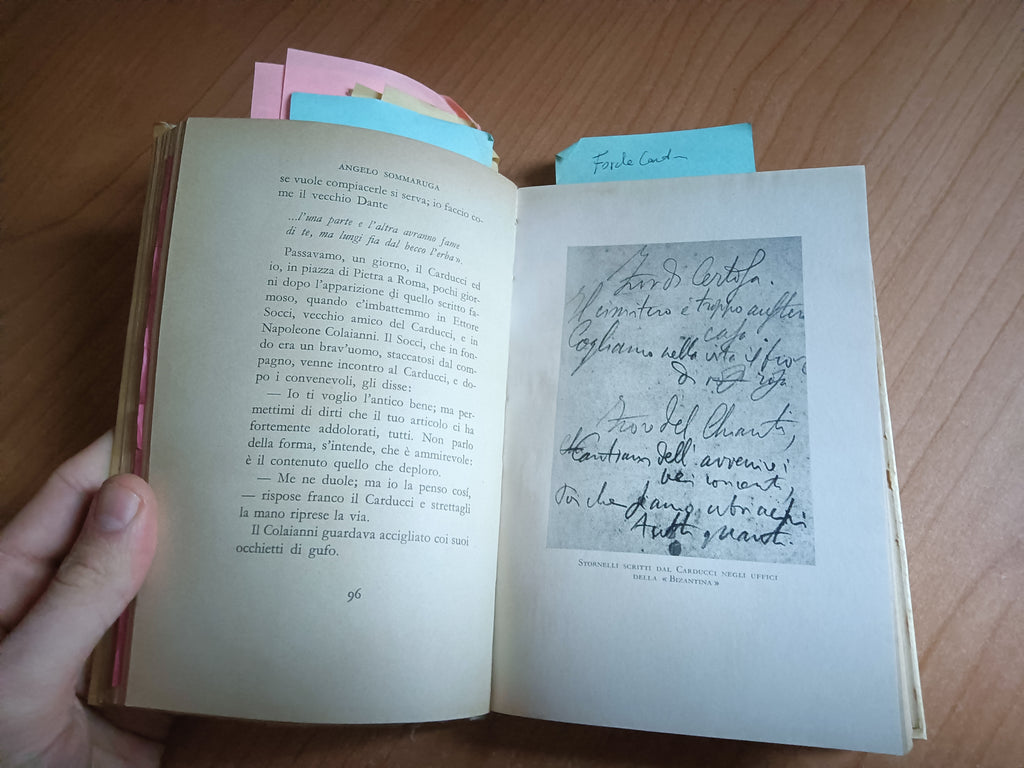 ANGELO SOMMARUGA
se vuole compiacerle si serva; io faccio co-
me il vecchio Dante
...l'una parte e l'altra avranno fame
di te, ma lungi fia dal becco l'erba».
Passavamo, un giorno, il Carducci ed
io, in piazza di Pietra a Roma, pochi gior-
ni dopo l'apparizione di quello scritto fa-
moso, quando c'imbattemmo in Ettore
Socci, vecchio amico del Carducci, e in
Napoleone Colaianni. Il Socci, che in fon-
do era un brav'uomo, staccatosi dal com-
pagno, venne incontro al Carducci, e do-
po i convenevoli, gli disse:
— Io ti voglio l'antico bene; ma per-
mettimi di dirti che il tuo articolo ci ha
fortemente addolorati, tutti. Non parlo
della forma, s'intende, che è ammirevole:
è il contenuto quello che deploro.
— Me ne duole; ma io la penso così,
— rispose franco il Carducci e strettagli
la mano riprese la via.
Il Colaianni guardava accigliato coi suoi
occhietti di gufo.
96
Fior di Certosa.
Il cimitero è troppo
casa
Cogliamo nella vita il fior
di
Fior del Chianti,
dell'avvenire i
Poi che siamo ubriachi
Tutti quanti.
STORNELLI SCRITTI DAL CARDUCCI NEGLI UFFICI
DELLA « BIZANTINA »